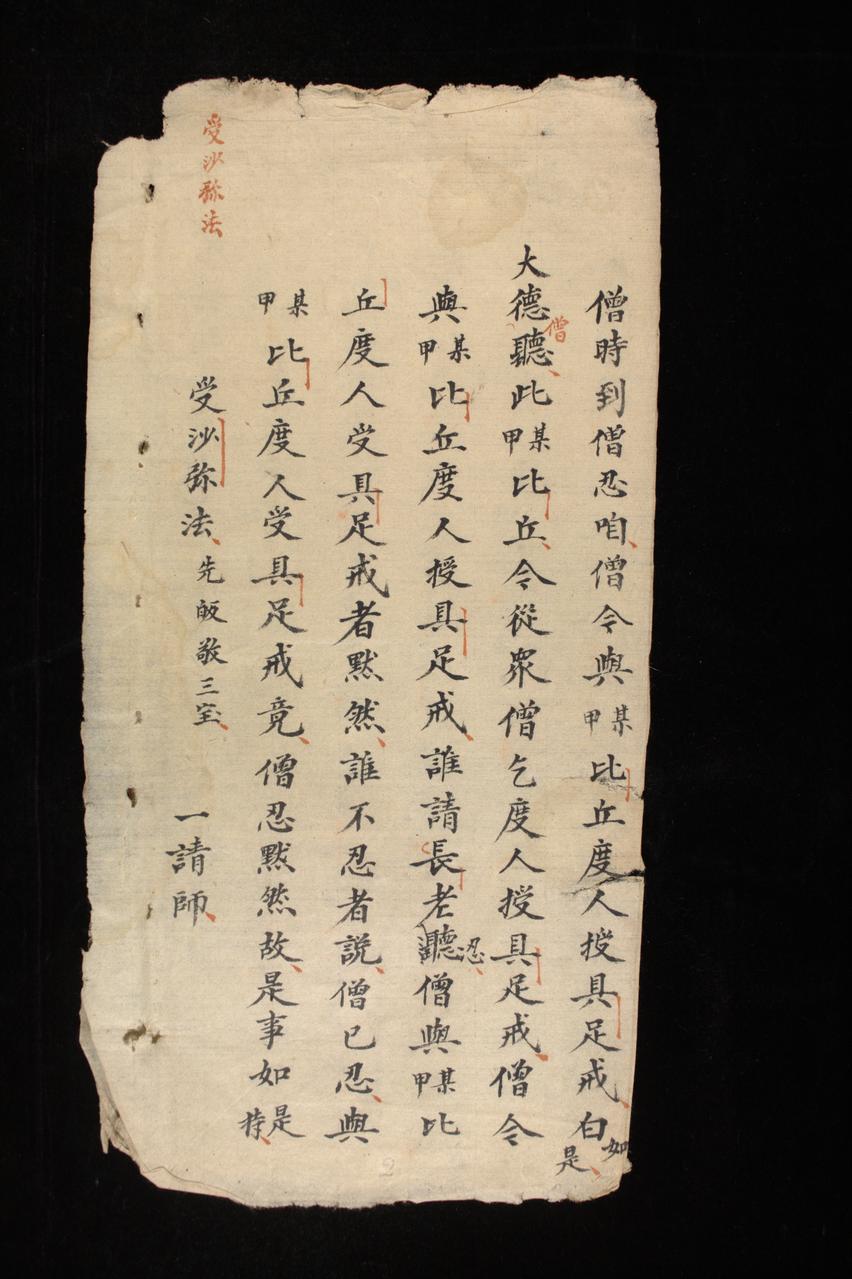 僧時到僧忍咱僧令與某甲比丘度人授具足戒白如是
大德僧聽此某甲比丘令從眾僧乞度人授具足戒僧令
與某甲比丘度人授具足戒誰請長老聽忍僧與某甲比
丘度人受具足戒者默然誰不忍者說僧已忍與
某甲比丘度人受具足戒竟僧忍默然故是事如是持
受沙弥法先皈敬三宝 一請師
受沙弥法
2